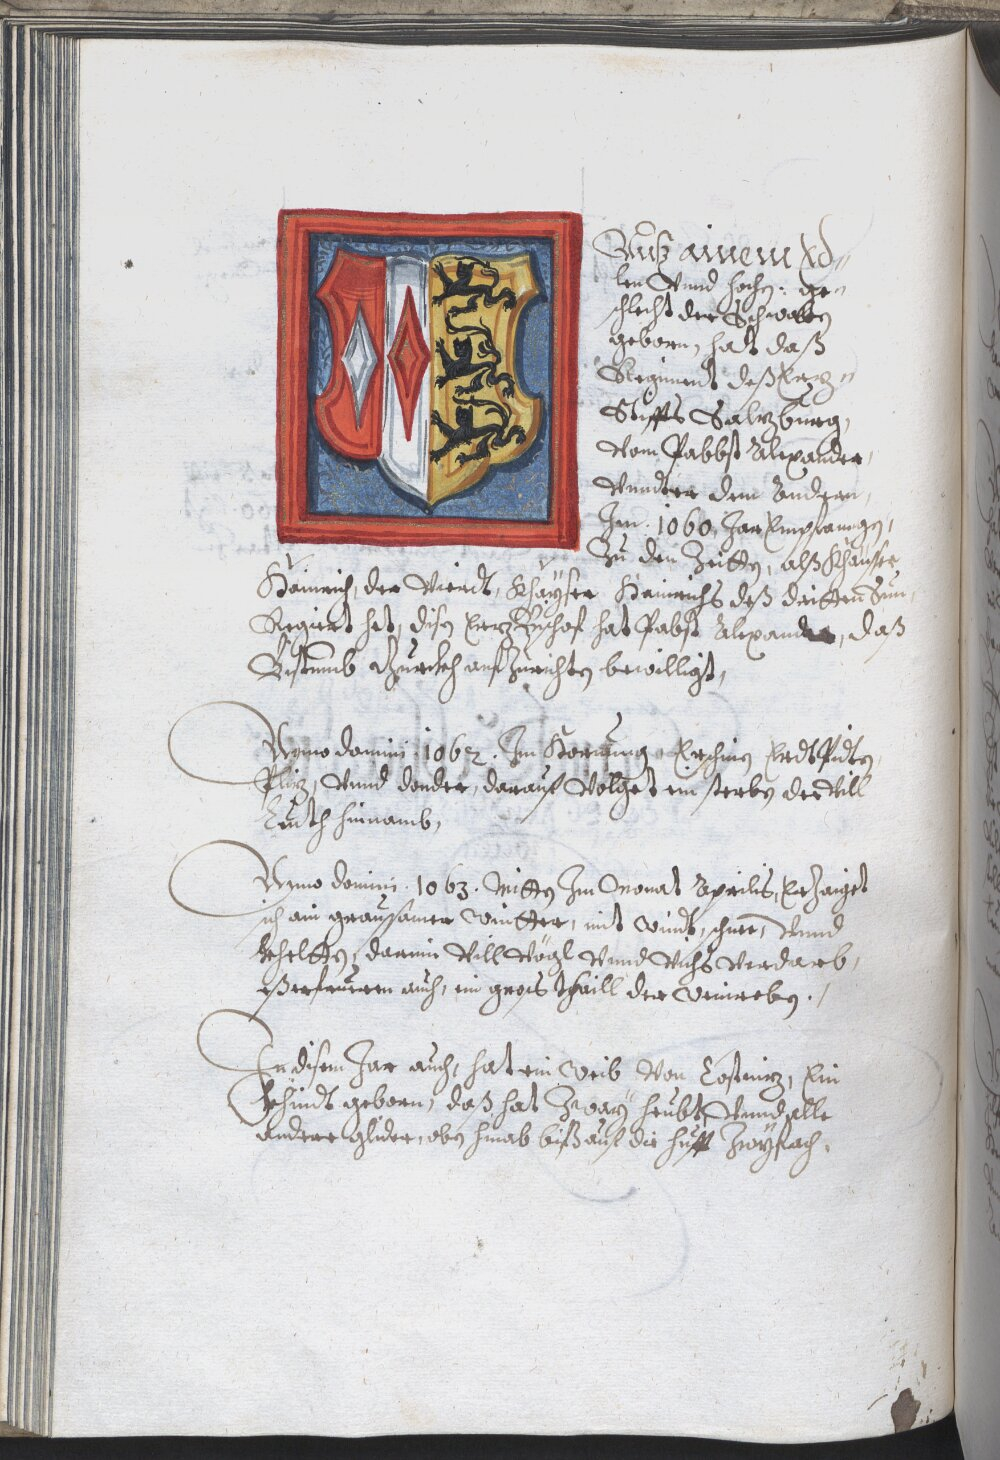 Auß ainem Ed=
len Vnnd hochen ge=
schlecht der Schwaben
geborn, hat daß
Regiment deß Ertz=
Stiffts Saltzburg,
vom Pabbst Alexander,
Vnnder dem Andern,
Im. 1060. Jar Empfangen,
Zu den Zeitten, alß Khayser
Hainrich, der Vierdt, Khayser Hainrichs deß dritten Sun,
Regiert het, disen Ertz Bischof hat Pabst Alexander, daß
Bistumb Gurckh aufzurichten bewilligt,
Anno domini. 1062. Im Hornung Erschinen Erdtpidten,
Plitz, Vnnd donder, darauf Volget ein sterben der Vill
Leuth hinnamb,
Anno domini. 1063. Mitten Im Monat Aprilis, Erzaiget
sich ain grausamer Wintter, mit windt, schnee, Vnnd
Khelten, darinn Vill Vögl Vnnd Vichs Verdarb,
Erfruren auch, ein grois thaill der Weinreben.
In disem Jar auch, hat ein Weib Von Costnitz, Ein
Khindt geborn, daß hat Zway heubt, Vnnd alle
andere glider, oben hinab biß auf die hufft Zwyfach,